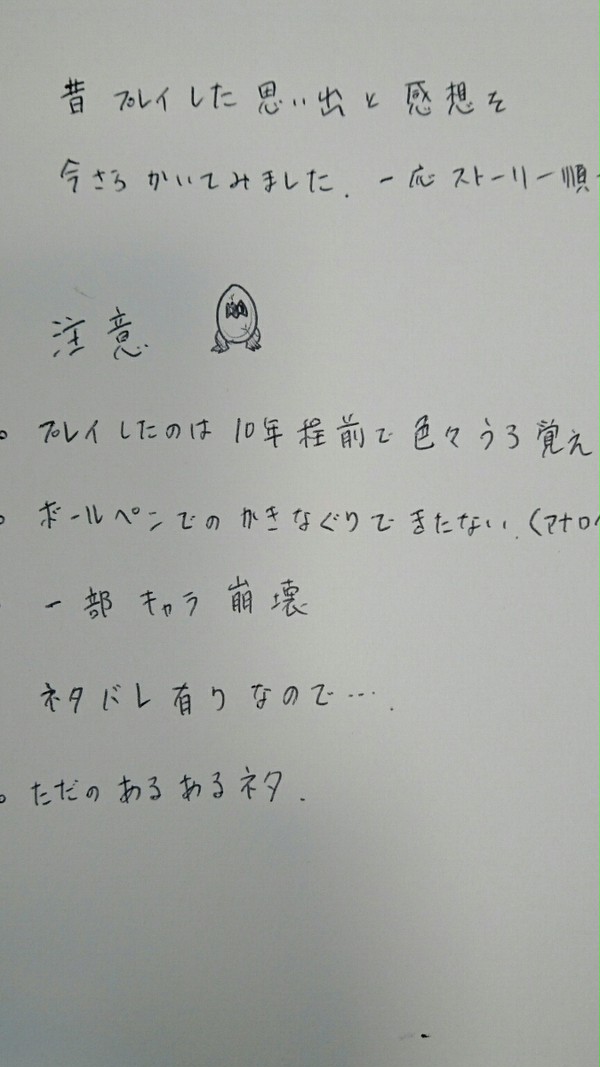 昔 プレイした 思い出と 感想を
今さら かいてみました. 一応 ストーリー順
注意
○ プレイしたのは 10年程前で 色々うろ覚え
○ ボールペンでの かきなぐりで きたない. (アナログ
一部 キャラ 崩壊
ネタバレ 有りなので….
○ ただの あるあるネタ.